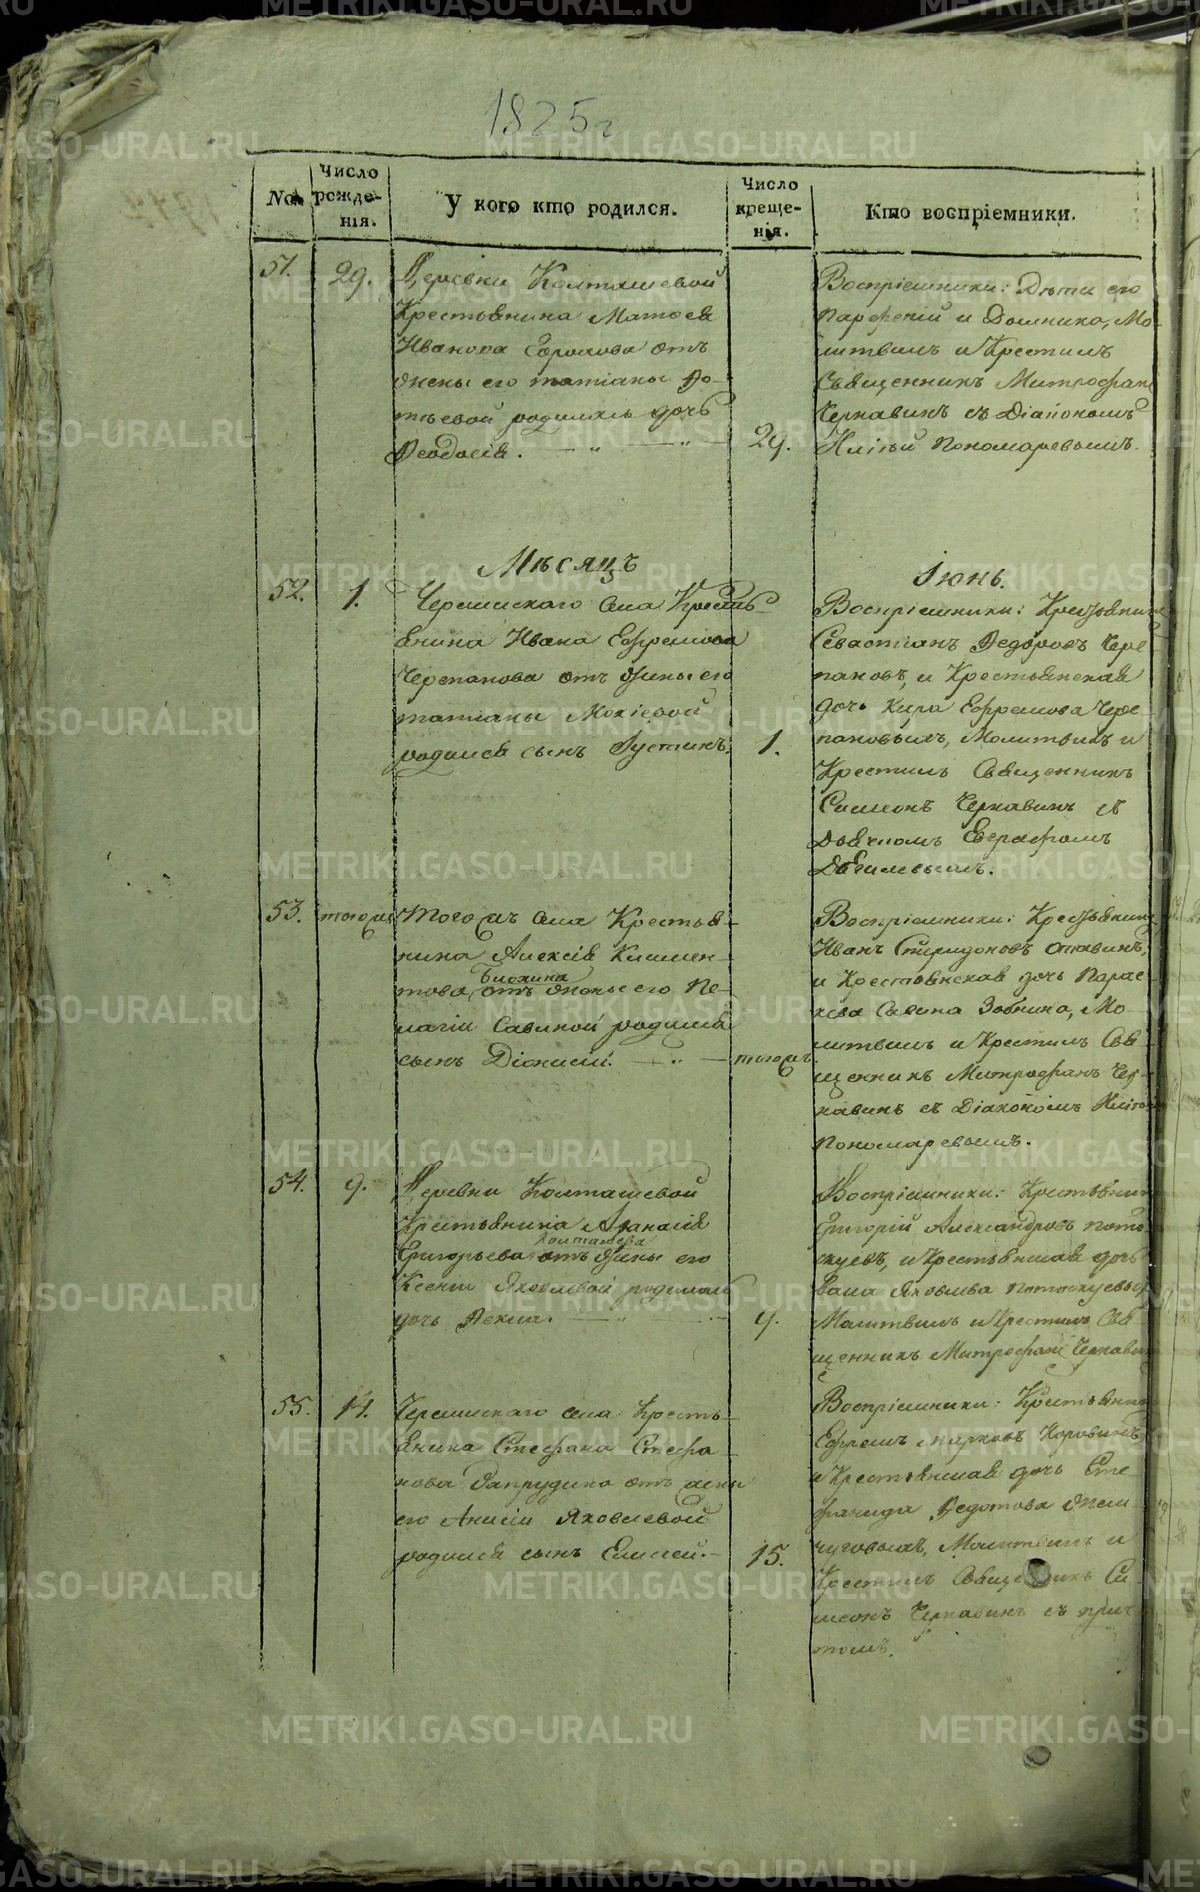 1825 г
№
Число рожденія.
У кого кто родился.
Число крещенія.
Кто воспріемники.
51.
29.
Деревни Колташевой
Крестьянина Матвея
Иванова Ефромова отъ
жены его татіаны Фо-
тѣевой родилась дочь
Феодосія.
29.
Воспріемники: Дѣти его
Парфеній и Домника, Мо-
литвилъ и Крестилъ
Священникъ Митрофанъ
Чернавинъ съ Діакономъ
Иліей Пономаревымъ.
Мѣсяцъ
Іюнь.
52.
1.
Черемискаго села Кресть-
янина Ивана Ефремова
Черепанова отъ жены его
татіаны Мокіевой
родился сынъ Іустинъ.
1.
Воспріемники: Крестьянинъ
Севастіанъ Федоровъ Чере
пановъ, и Крестьянская
дочь Кира Ефремова Чере
пановыхъ, Молитвилъ и
Крестилъ Священникъ
Симеонъ Чернавинъ съ
Дьячкомъ Евграфомъ
53.
тогожъ
Тогожъ села Крестья-
нина Алексія Климен-
това отъ жены его Пе-
лагіи Савиной родился
сынъ Діонисій.
тогожъ
Воспріемники: Крестьянинъ
Иванъ Спиридоновъ
и Крестьянская дочь Парас
кева Савина Зобнина, Мо
литвилъ и Крестилъ Свя
щенникъ Митрофанъ Чер-
навинъ съ Діакономъ Иліей
Пономаревымъ.
54.
9.
Деревни Колташевой
Крестьянина Афанасія
Колташева
Григорьева отъ жены его
Ксеніи Яковлевой родилась
дочь Фекла.
9.
Воспріемники: Крестьянинъ
Григорій Александровъ Пото
скуевъ, и Крестьянская дочь
Яковлева Потоскуевыхъ
Молитвилъ и Крестилъ Свя
щенникъ Митрофанъ Чернавинъ
55.
14.
Черемискаго села Кресть-
янина Стефана Стефа
нова Запрудина отъ жены
его Анисіи Яковлевой
родился сынъ Елисей.
15.
Воспріемники: Крестьянинъ
Ефремъ Марковъ Коровинъ
и Крестьянская дочь Сте
фанида Федотова Жем
чуговыхъ, Молитвилъ и
Крестилъ Священникъ Си
меонъ Чернавинъ съ прич
томъ.
METRIKI.GASO-URAL.RU